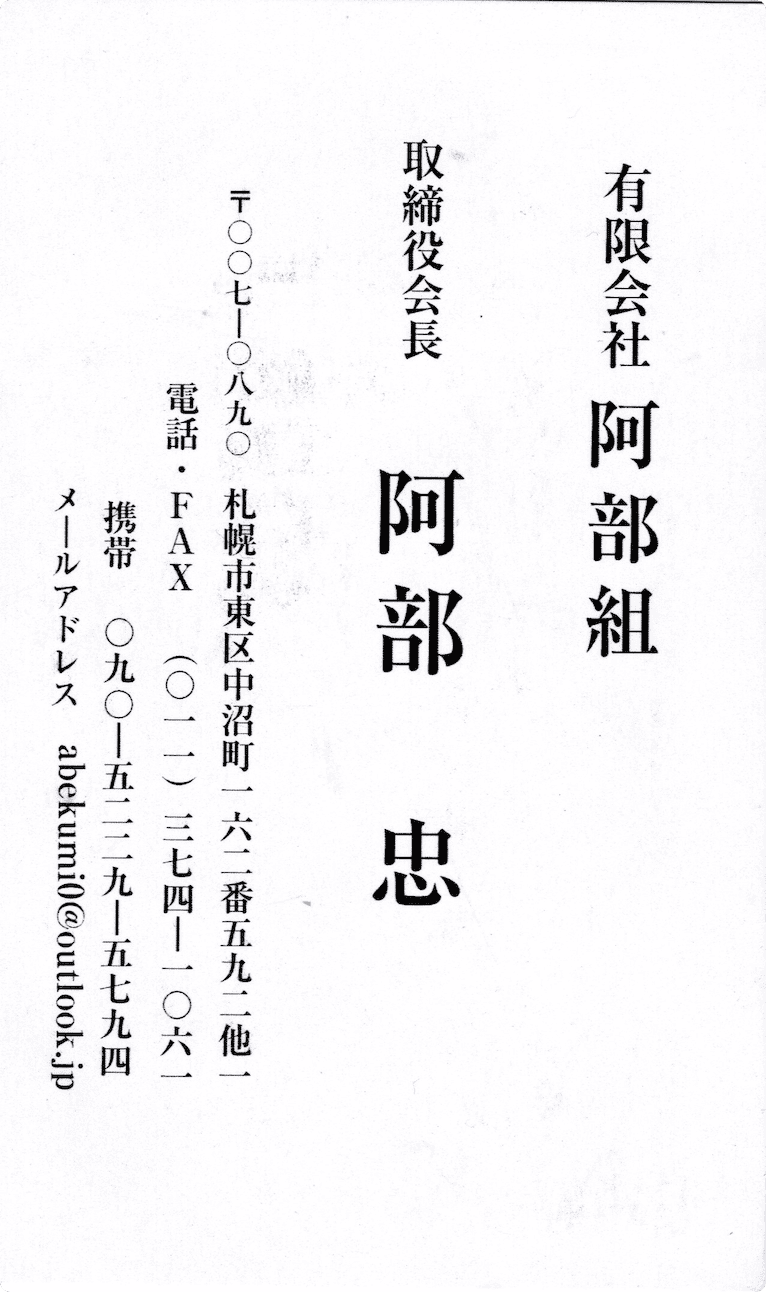 有限会社 阿部組
取締役会長 阿部 忠
〒〇〇七―〇八九〇 札幌市東区中沼町一六二番五九二他一
電話・FAX (〇一一)三七四―一〇六一
携帯 〇九〇―五二二九―五七九四
メールアドレス abekumi0@outlook.jp